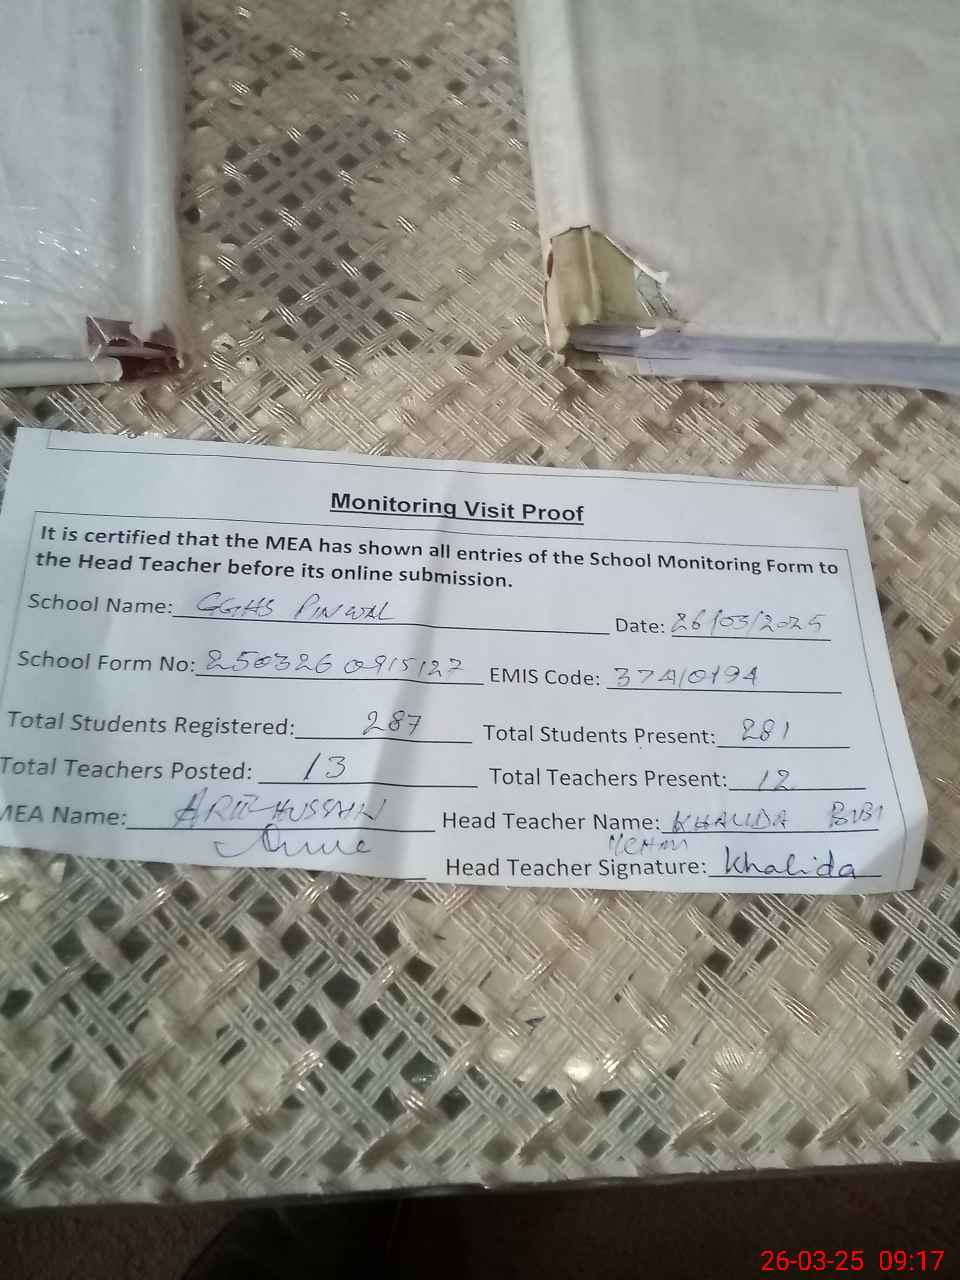 Monitoring Visit Proof
It is certified that the MEA has shown all entries of the School Monitoring Form to
the Head Teacher before its online submission.
School Name: GGHS PINWAL Date: 26/03/2025
School Form No: 2503260915127 EMIS Code: 37410194
Total Students Registered: 287 Total Students Present: 281
Total Teachers Posted: 13 Total Teachers Present: 12
MEA Name: HUSSAIN Head Teacher Name: KHALIDA BIBI
Head Teacher Signature: Khalida
26-03-25 09:17